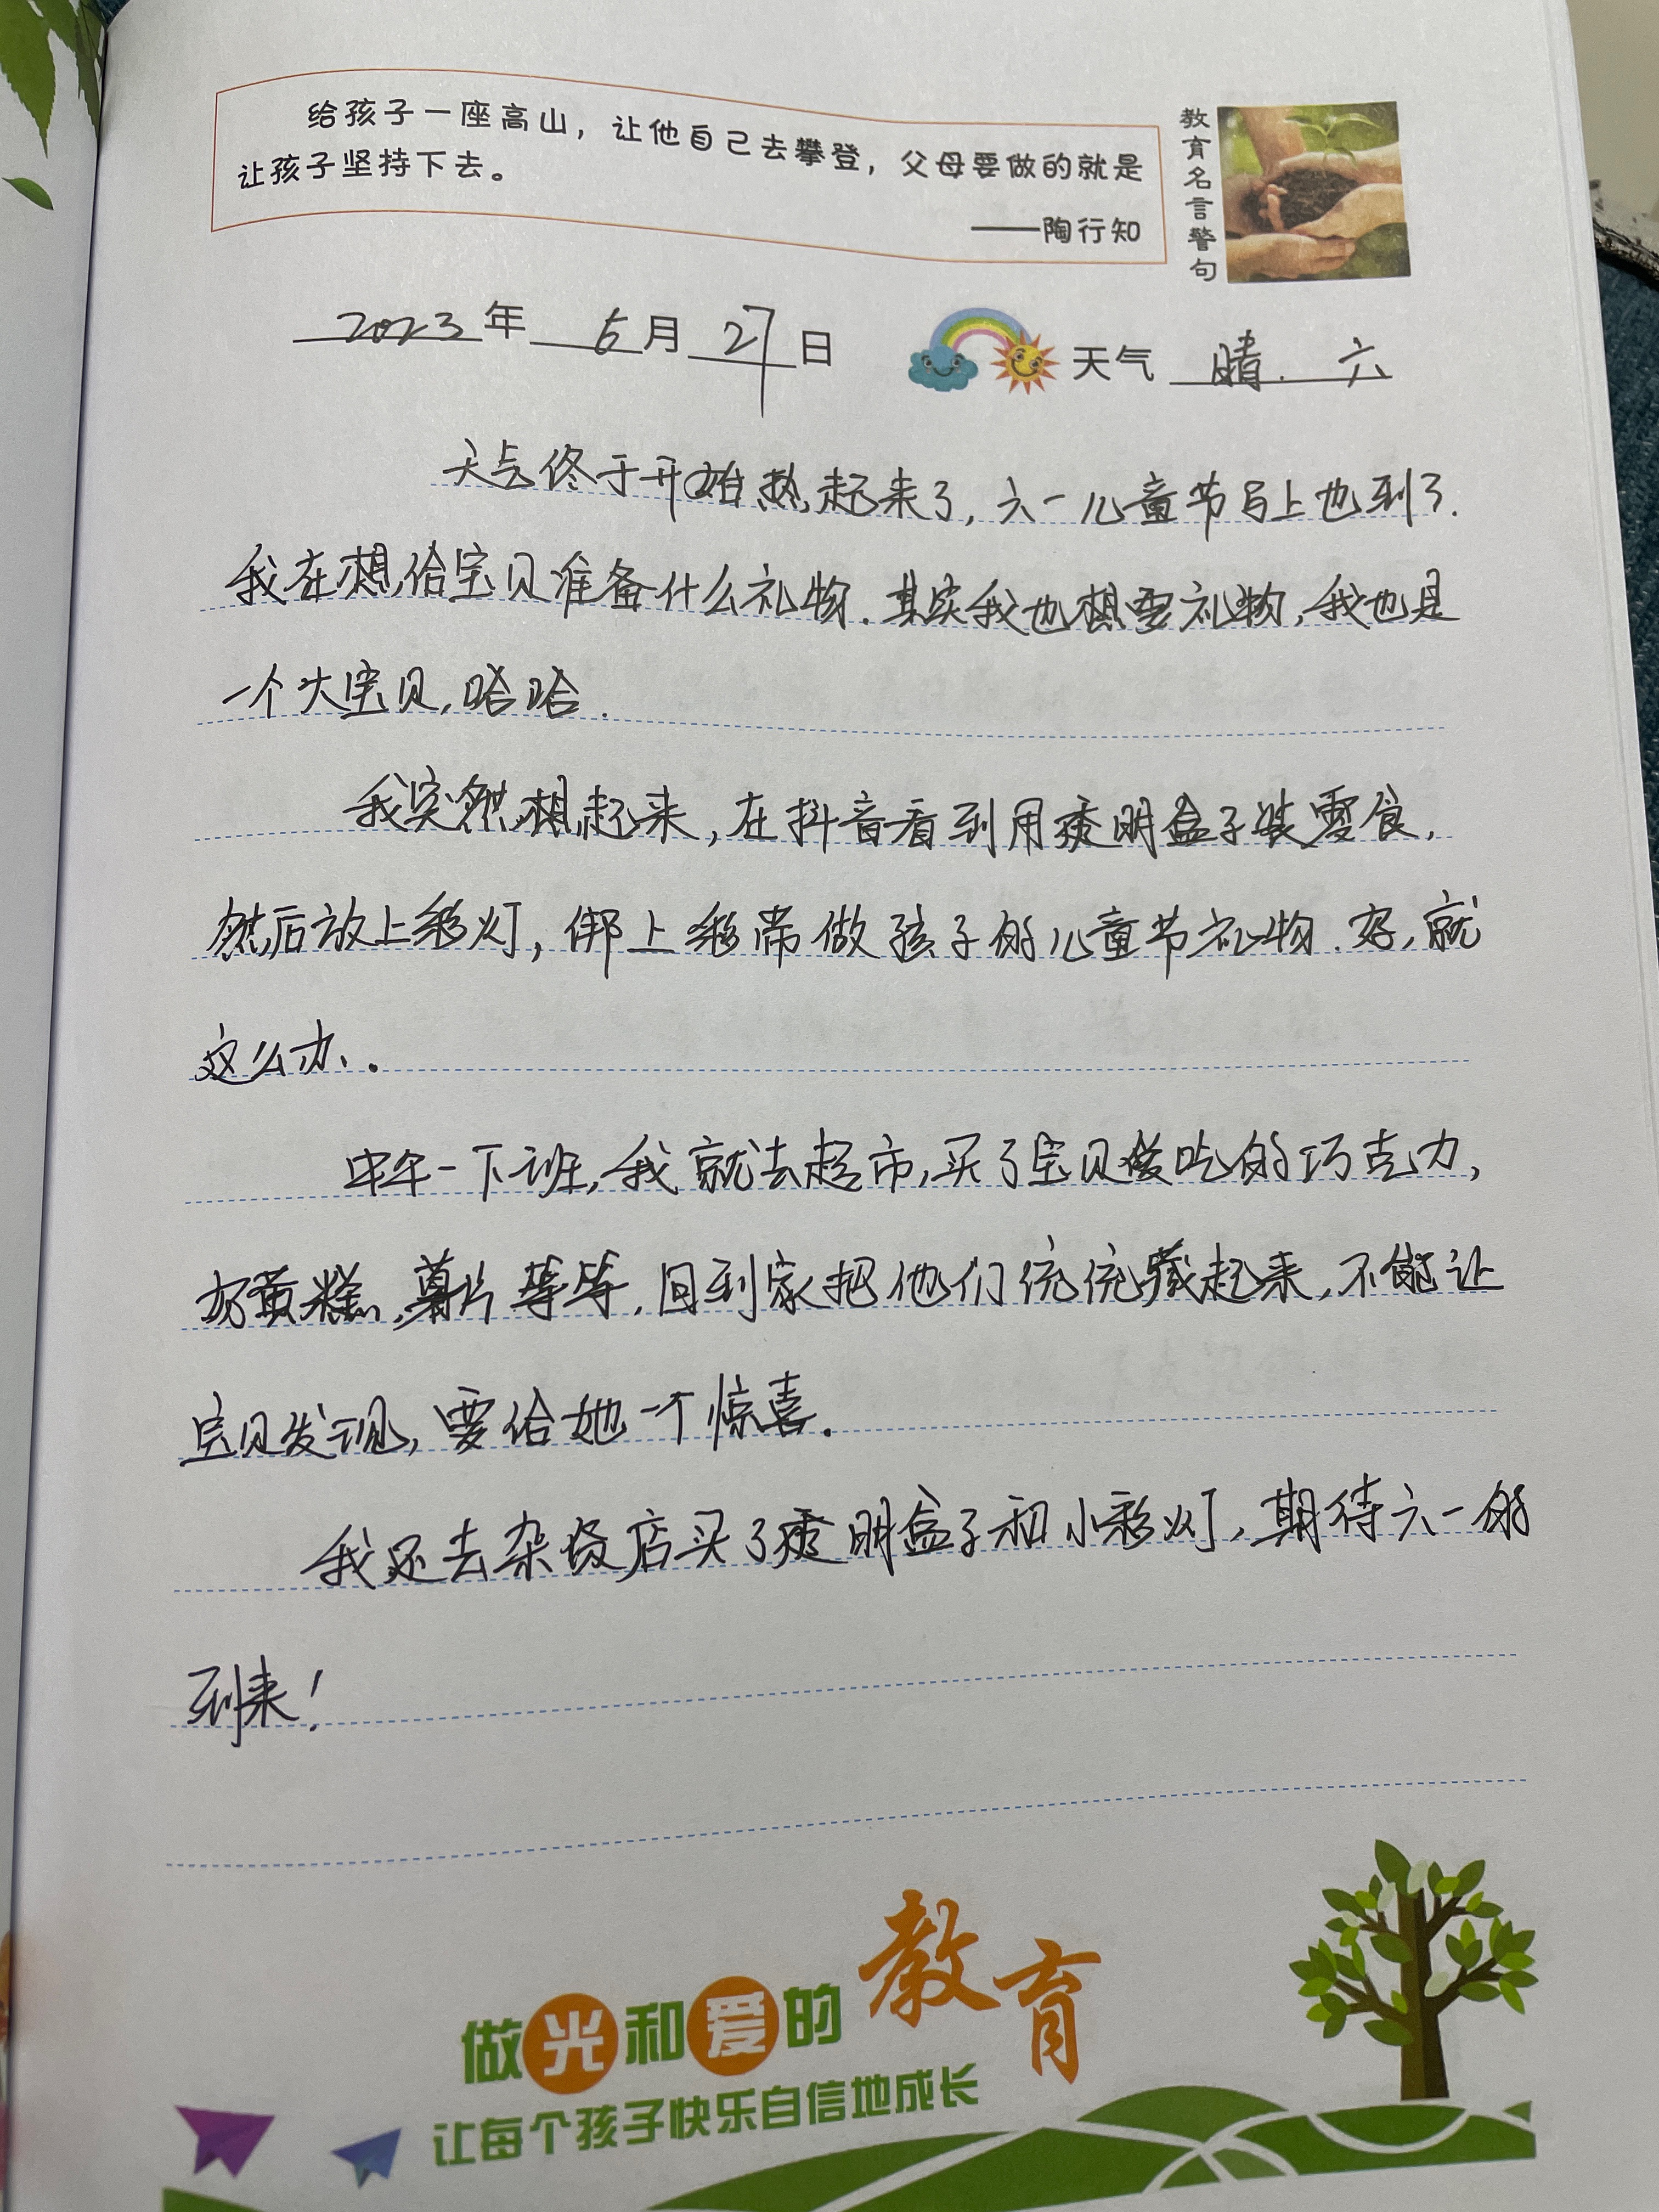 给孩子一座高山，让他自己去攀登，父母要做的就是
让孩子坚持下去。
——陶行知
教育名言警句
2023年 5月 27日
天气 晴. 六
天气终于开始热起来了，六一儿童节马上也到了.
我在想给宝贝准备什么礼物.其实我也想要礼物，我也是
一个大宝贝，哈哈.
我突然想起来，在抖音看到用透明盒子装零食，
然后放上彩灯，绑上彩带做孩子的儿童节礼物.好，就
这么办.
中午一下班，我就去超市，买了宝贝爱吃的巧克力，
奶黄糕，薯片等等，回到家把他们统统藏起来，不能让
宝贝发现，要给她一个惊喜.
我还去杂货店买了透明盒子和小彩灯，期待六一的
到来！
做光和爱的教育
让每个孩子快乐自信地成长